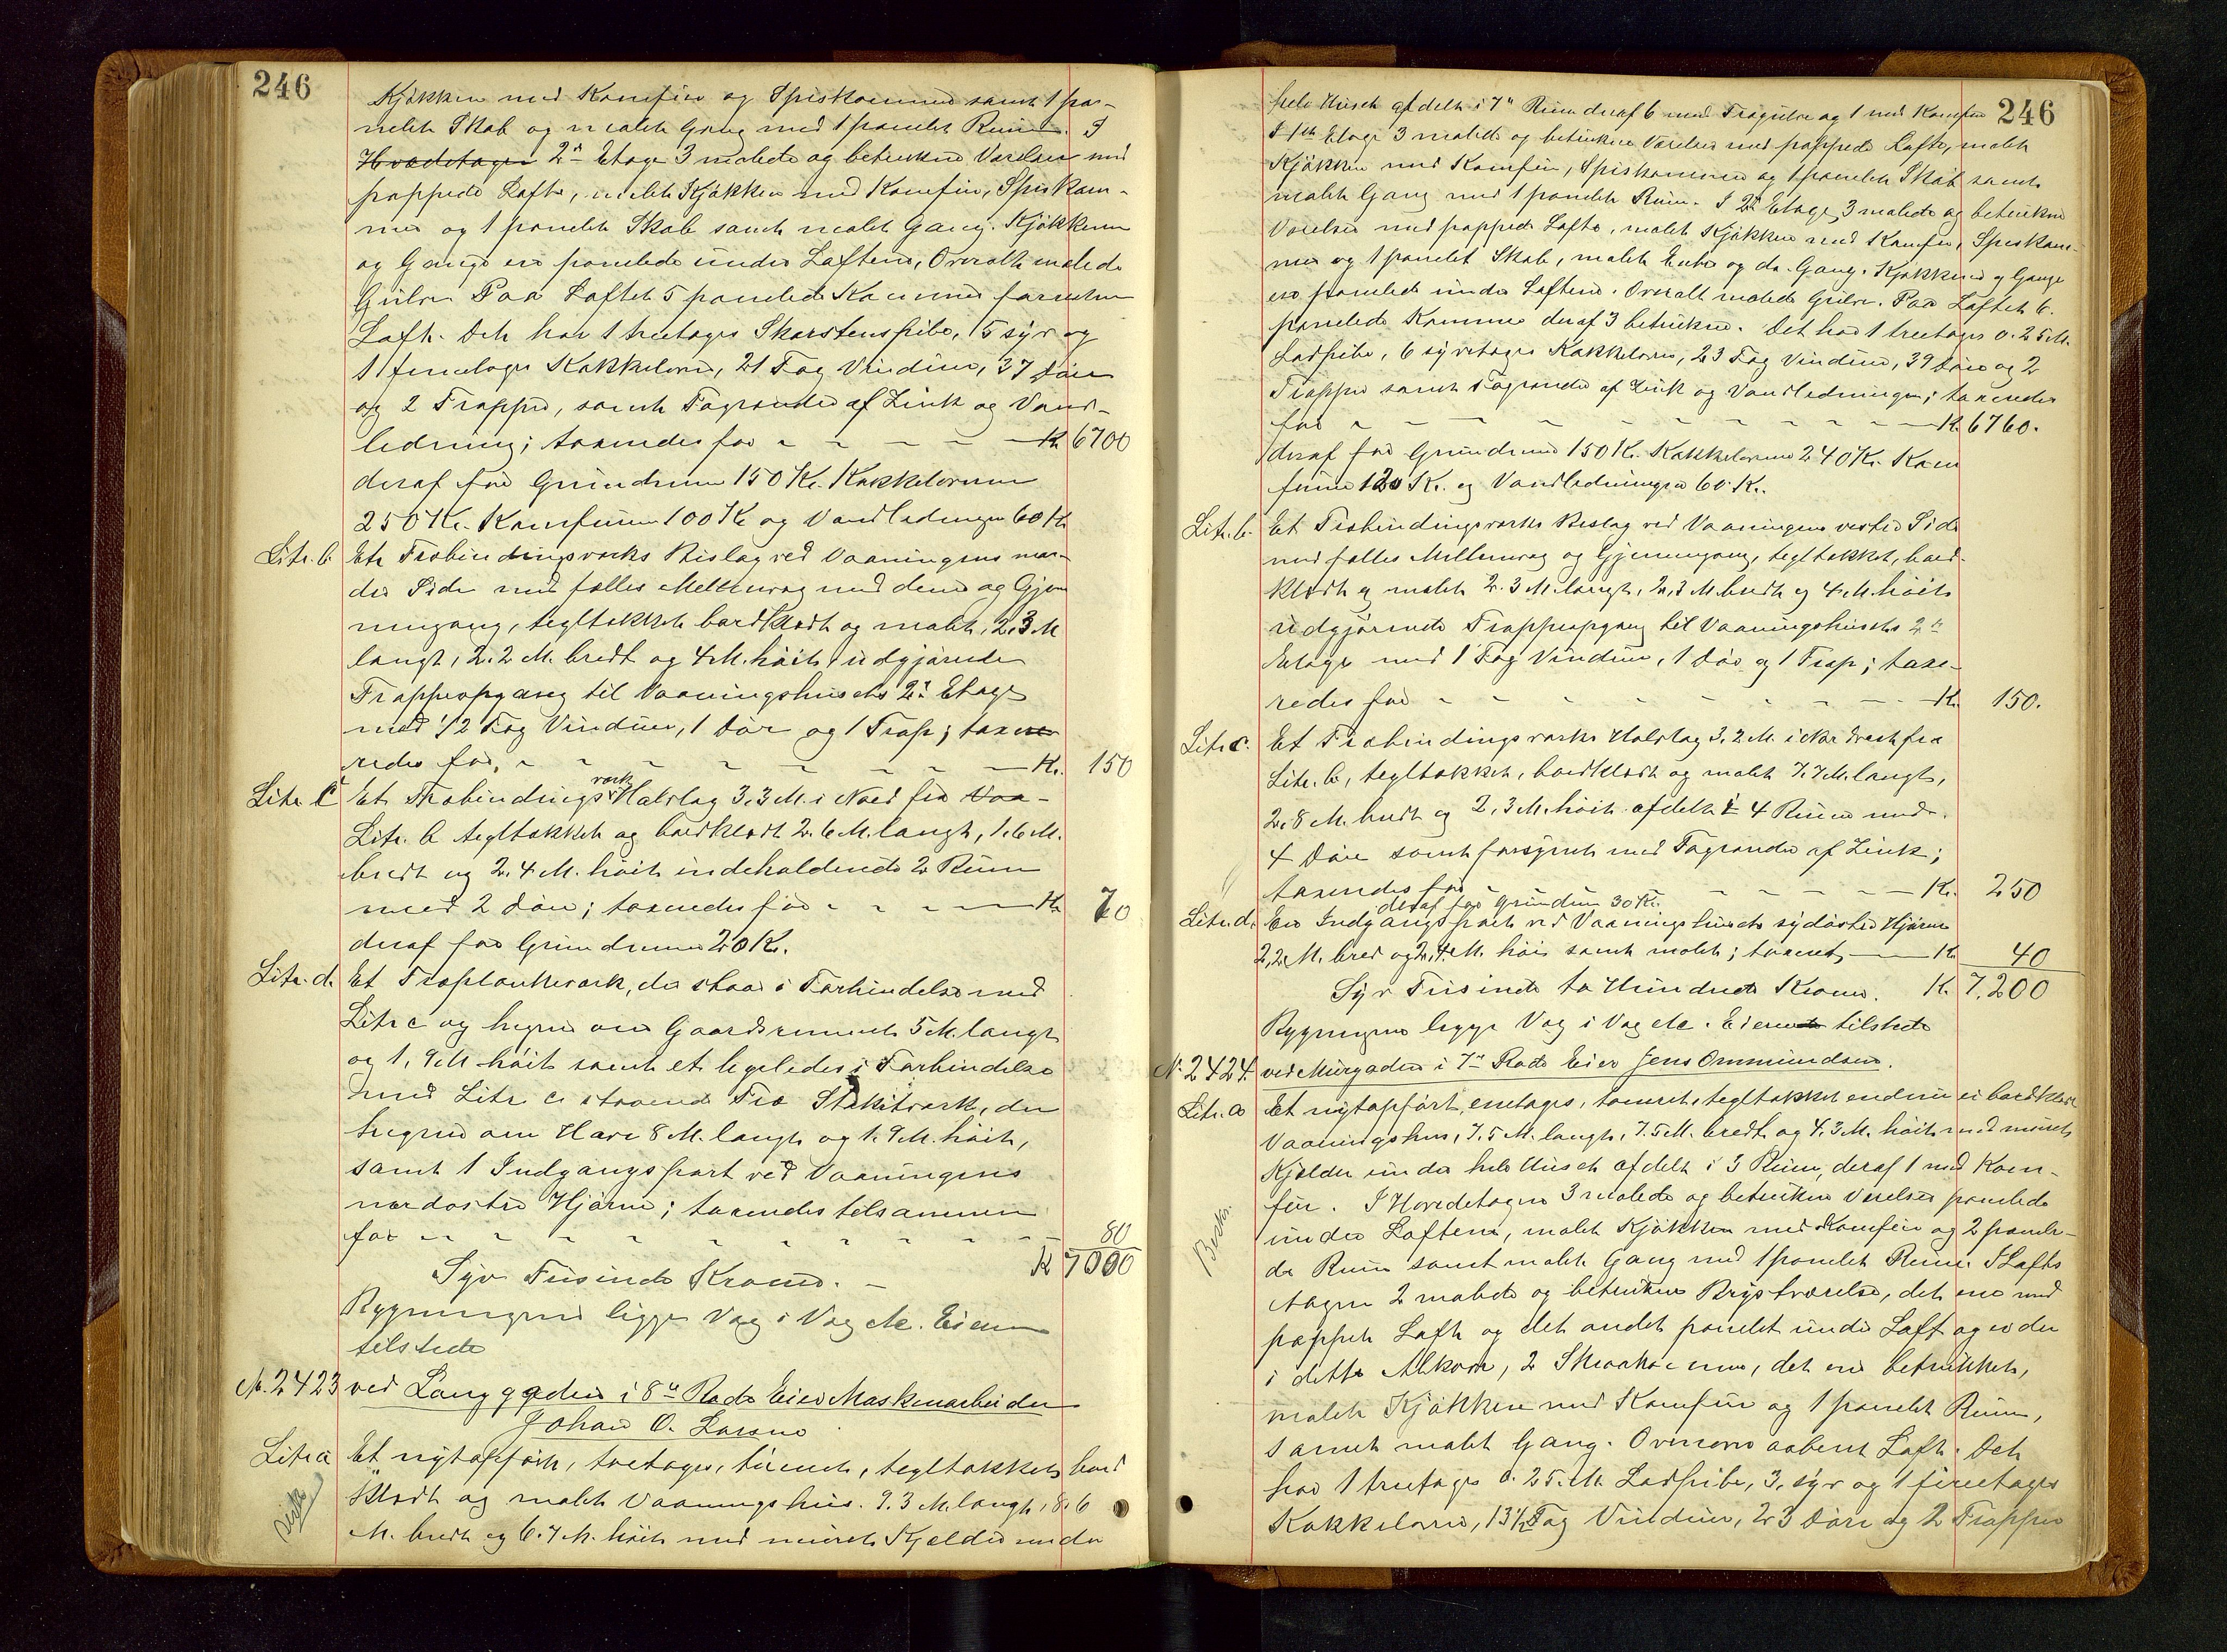 246
Kjøkken med Komfür og Spiskammer samt 1 pa-
nelet Skab og malet Gang med 1 panelet Rüm. I
Hovedetagen 2n Etage 3 malede og betrukne Værelser med
pappede Lofte, malet Kjøkken med Komfür, Spiskam-
mer og 1 panelet Skab samt malet Gang. Kjøkkenerne
og Gange ere panelede ünder Loftene, Overalt malede
Gülve. Paa Loftet 5 panelede Kammere foruden
Loft. Det har 1 treetages Skorstenspibe, 5 syv og
1 femetages Kakkelovne, 21 Fag Vindüer, 37 Døre
og 2 Trapper, samt Tagrender af Zink og Vand-
ledning; taxeredes for - - - - Kr. 6700
deraf for Grundmuren 150 Kr. Kakkelovnene
250 Kr. Komfürene 100 Kr og Vandledningen 60 Kr
Litr. b. Et Træbindingsværks Bislag ved Vaaningens nor-
dre Side med fælles Mellemvæg med denne og Gjen
nemgang, tegltækket bordklædt og malet, 2,3 M
langt, 2.2 M. bredt og 4 M. høit, üdgjørende
Trappeopgang til Vaaningshusets 2n Etage
med 1/2 Fag Vindüer, 1 Dør og 1 Trap; taxe
redes for, - - - - - - - Kr. 150
Litr. C Et Træbindingsværk Halvtag 3,3 M. i Nord fra Vaa-
Litr. b tegltækket og bordklædt 2.6 M. langt, 1.6 M.
bredt og 2.4 M. høit indeholdende 2 Rüm
med 2 Døre; taxeredes for - - - - Kr 70
deraf for Grundmuren 20 Kr.
Litr. d. Et Træplankeværk, der staar i Forbindelse med
Litr c og hegner om Gaardsrummet 5 M. langt
og 1,9 M høit samt et ligeledes i Forbindelse
med Litr c staaende Træ Stakitværk, der
hegner om Have 8 M. langt og 1.9 M. høit,
samt 1 Indgangsport ved Vaaningens
nordøstre Hjørne; taxeredes tilsammen
for - - - - - - - - 80
Kr 7000
Syv Tüsinde Kroner. -
Bygningerne ligge Væg i Væg etc. Eieren
tilstede
No. 2423 ved Langgaden i 8de Rode Eier Maskinarbeider
Johan O. Larsen
Litr a Et nyt opført, toetages, tømret, tegltækket, bord
klædt og malet Vaaningshüs. 9.3 M. langt, 8.6
M. bredt og 6.7 M. høit med müret Kjelder under
246
hele Hüset afdelt i 7 Rüm deraf 6 med Trægülve og 1 med Komfür
I 1ste Etage 3 malede og betrukne Værelser med pappede Lofte, malet
Kjøkken med Komfür, Spiskammer og 1 panelet Skab samt
malet Gang med 1 panelet Rüm. I 2n Etage 3 malede og betrukne
Værelser med pappede Lofte, malet Kjøkken med Komfür, Spiskam-
mer og 1 panelet Skab, malet Entre og do. Gang. Kjøkkener og Gange
ere panelede ünder Loftene. Overalt malede Gülve. Paa Loftet 6.
panelede Kammere deraf 3 betrukne. Det har 1 treetages 0.25 M.
Ladpibe, 6 syvetages Kakkelovne, 23 Fag Vindüer, 39 Døre og 2
Trapper samt Tagrender af Zink og Vandledningen; taxeredes
for - - - - - - - - - Kr. 6760.
deraf for Grundmuren 150 Kr. Kakkelovnene 240 Kr. Kom
fürene 120 Kr. og Vandledningen 60 Kr.
Litr. b. Et Træbindingsværks Bislag ved Vaaningens vestre Side
med fælles Mellemvæg og Gjennemgang, tegltækket, bord-
klædt og malet 2.3 M. langt, 2,3 M bredt og 4 M. høit
üdgjørende Trappeopgang til Vaaningshüsets 2n
Etage med 1 Fag Vindüer, 1 Dør og 1 Trap; taxe-
redes for - - - - - - - - Kr. 150.
Litr c. Et Træbindingsværks Halvtag 3,2 M. i Vest fra
Litr. b, tegltækket, bordklædt og malet 7.7 M. langt,
2,8 M. bredt og 2,3 M. høit afdelt i 4 Rüm med
4 Døre samt forsynet med Tagrender af Zink;
taxeredes for - - - - - Kr. 250
deraf for Grundmur 30 Kr.
Litr. d. En Indgangsport ved Vaaningshüsets sydøstre Hjørne
2,2 M. bred og 2,4 M. høi samt malet; taxeret, - Kr 40
Syv Tüsinde to Hündrede Kroner. Kr. 7,200
Bygningerne ligge Væg i Væg etc. Eieren tilstede
No 2424. ved Mürgaden i 7de Rode Eier Jens Ommündsen.
Litr. a Et nyt opført, enetages, tømret, tegltækket endnu ei bordklædt
Vaaningshus, 7.5 M. langt, 7.5 M. bredt og 4.3 M. høit med müret
Kjelder ünder hele Hüset afdelt i 3 Rüm, deraf 1 med Kom-
für. I Hovedetagen 3 malede og betrukne Værelser panelede
ünder Loftene, malet Kjøkken med Komfür og 2 panele-
de Rüm samt malet Gang med 1 panelet Rüm. I Lofts
etagen 2 malede og betrukne Brystværelser, det ene med
pappet Loft og det andet panelet ünder Loft og er der
i dette Alkove, 2 Skraakamre, det ene betrükket,
malet Kjøkken med Komfür og 1 panelet Rüm,
samt malet Gang. Ovenover aabent Loft. Det
har 1 treetages 0.25 M. Ladpibe, 3 syv og 1 fireetages
Kakkelovne, 13 1/2 Fag Vindüer, 23 Døre og 2 Trapper